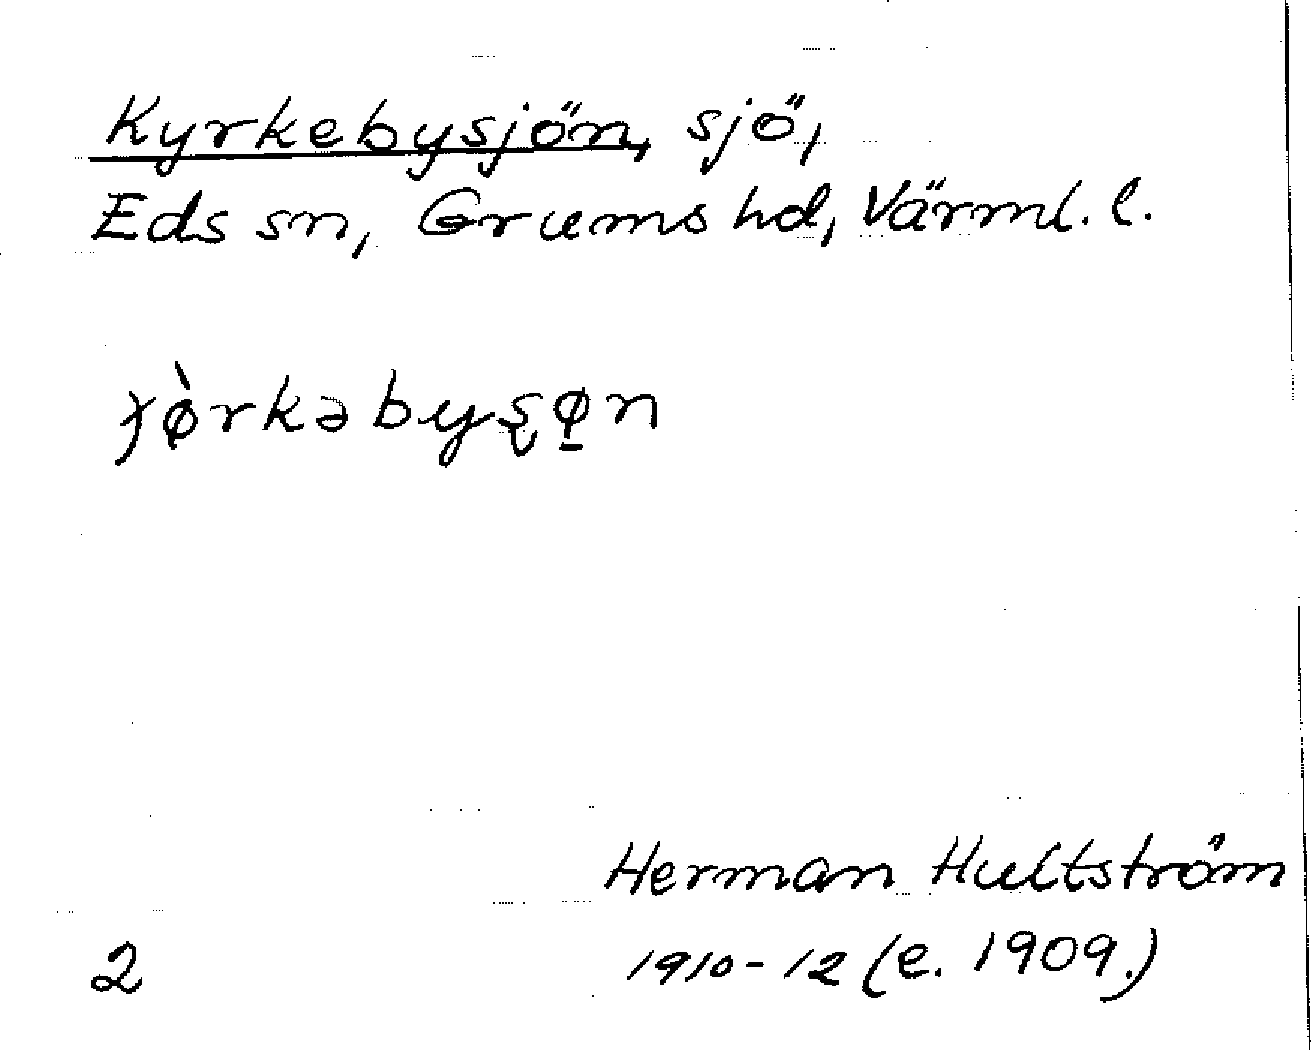 Kyrkebysjön, sjö,
Eds sn, Grums hd, Värml. l.
ɟø̀rkəbyʂø̠n
Herman Hultström
1910-12 (e. 1909.)
2